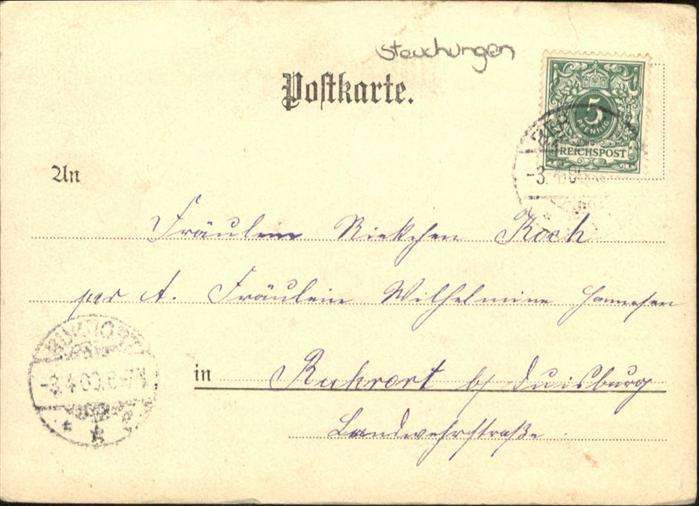 Stauchungen
Postkarte.
5
PFENNIG
REICHSPOST
-3.4.0
An
Fräulein Riekchen Koch
per A. Fräulein Wilhelmine Hannesen
in Ruhrort b/ Duisburg
Landwehrstraße
RUHRORT
-3.4.00.6-7